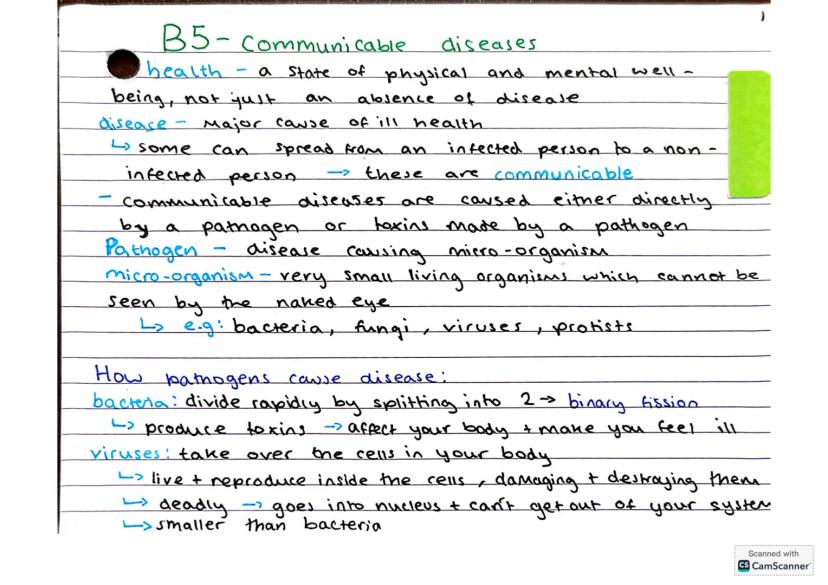 1
B5 - Communicable diseases
health - a state of physical and mental well-
being, not just an absence of disease
disease - Major cause of ill health
↳ some can spread from an infected person to a non-
infected person → these are communicable
- communicable diseases are caused either directly
by a pathogen or toxins made by a pathogen
Pathogen - disease causing micro-organism
micro-organism - very small living organisms which cannot be
seen by the naked eye
↳ e.g: bacteria, fungi, viruses, protists
How pathogens cause disease:
bacteria: divide rapidly by splitting into 2 → binary fission
↳ produce toxins → affect your body + make you feel ill
viruses: take over the cells in your body
↳ live + reproduce inside the cells, damaging + destroying them
↳ deadly → goes into nucleus + can't get out of your system
↳ smaller than bacteria
Scanned with
CS CamScanner